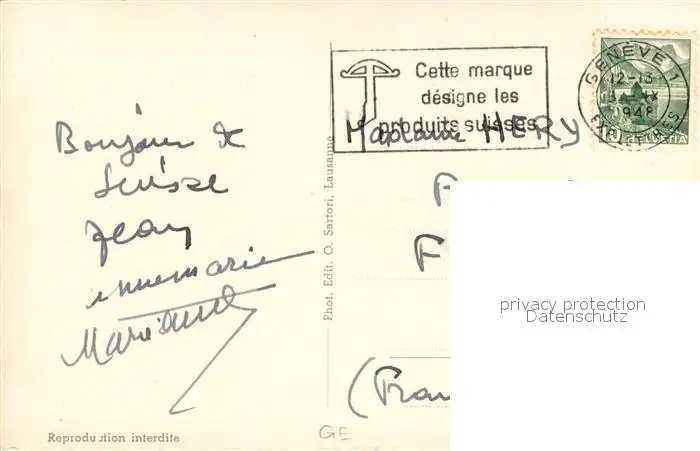 Bonjour de
Suisse
Jean
Annemarie
Marianne
Reproduction interdite
Phot. Edit. O. Sartori, Lausanne
GE
Cette marque
désigne les
produits suisses
GENÈVE 1
12-13
IX
1948
HELVETIA
Madame HERY
P
F
(Fran
privacy protection
Datenschutz